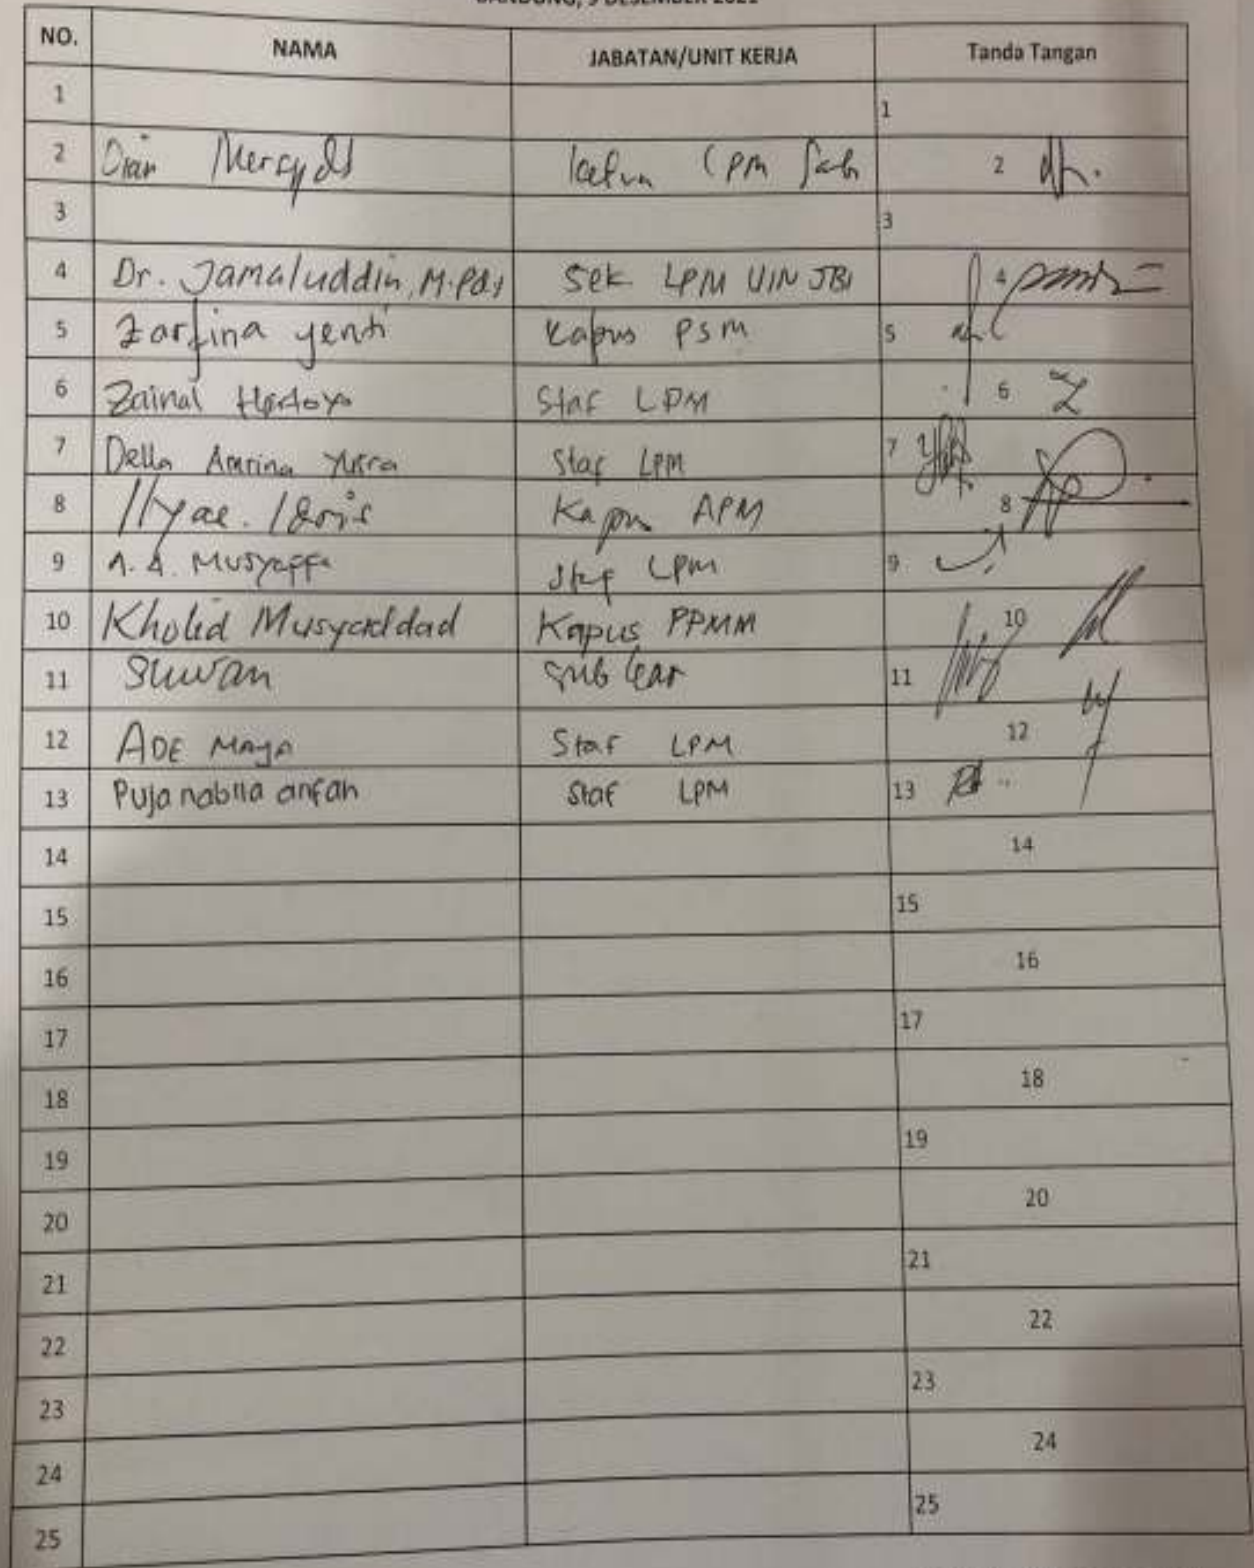 BANDUNG, 9 DESEMBER 2021
NO. NAMA JABATAN/UNIT KERJA Tanda Tangan
1 1
2 Dian LPM 2
3 3
4 Dr. Jamaluddin, M.Pd.I Sek LPM UIN JBI 4
5 Zarfina yenti Kapus PSM 5
6 Zainal Staf LPM 6
7 Della Amrina Yusra Staf LPM 7
8 Ilyas Idris Kapus APM 8
9 A. A. Musyaffa Staf LPM 9
10 Kholid Musyaddad Kapus PPMM 10
11 11
12 ADE Maya Staf LPM 12
13 Puja nabila Staf LPM 13
14 14
15 15
16 16
17 17
18 18
19 19
20 20
21 21
22 22
23 23
24 24
25 25